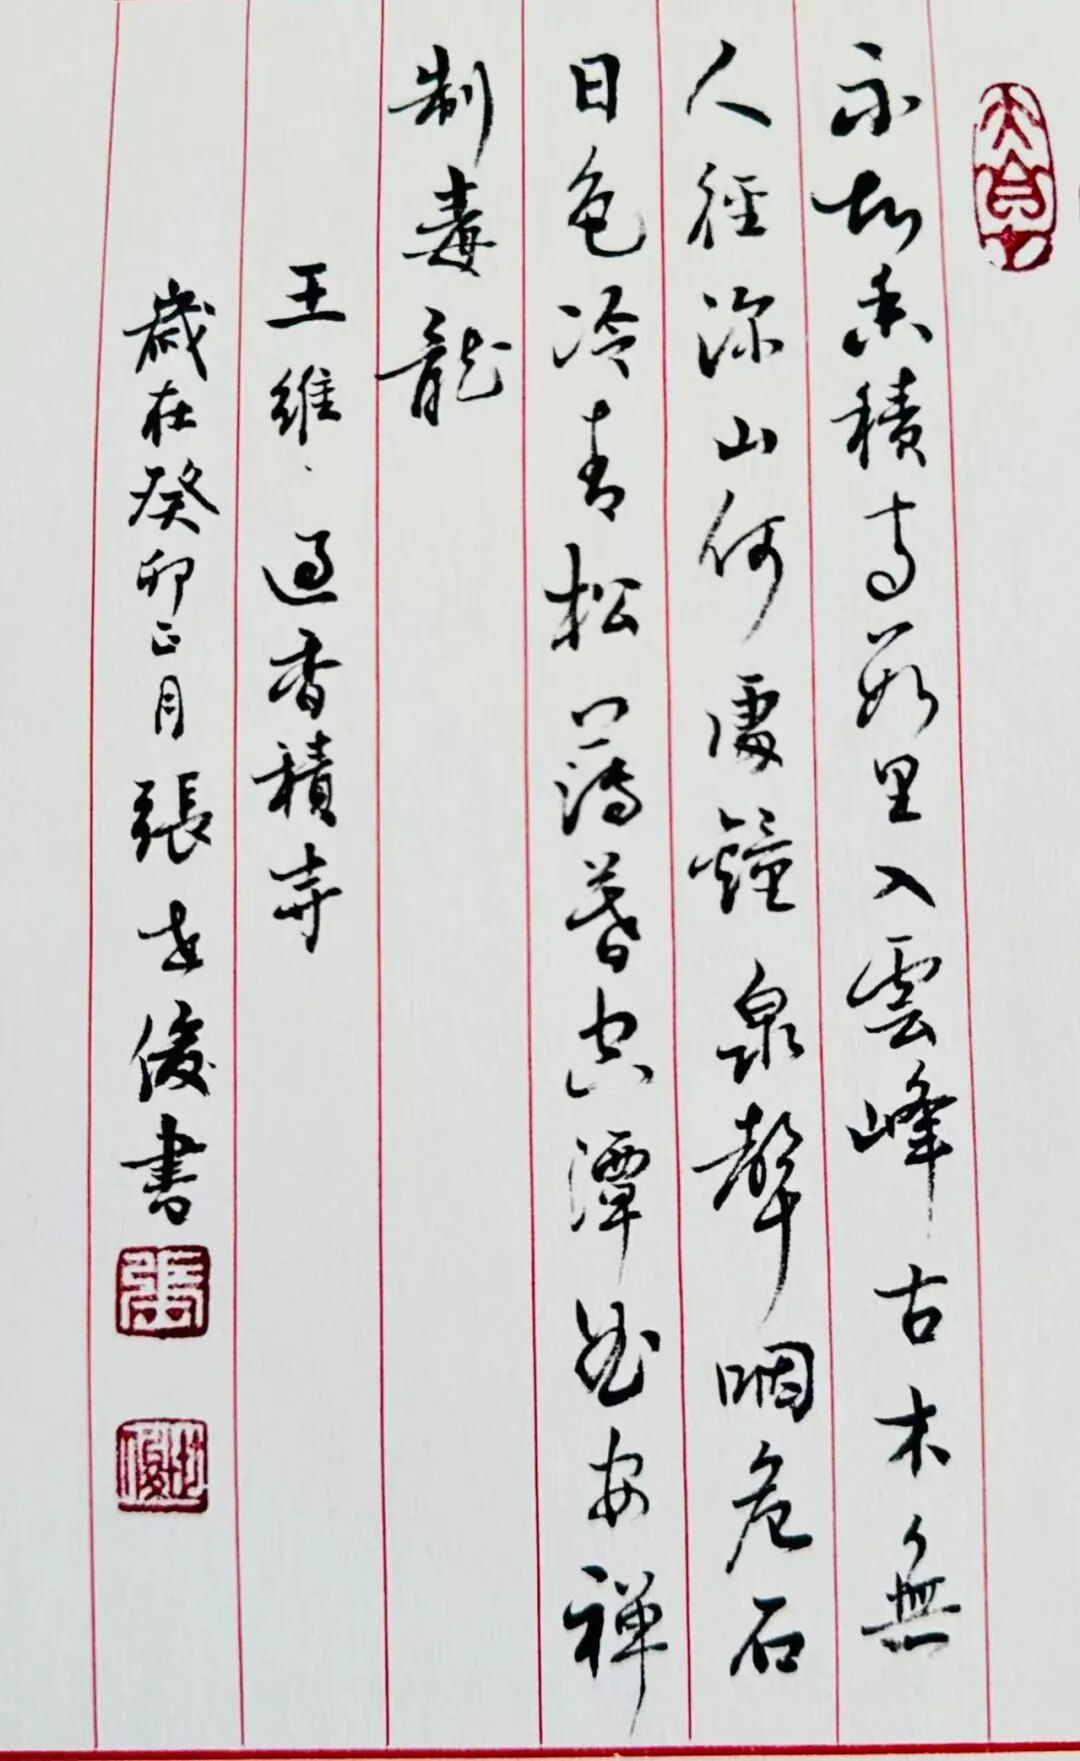 不知香積寺數里入雲峰古木無
人徑深山何處鐘泉聲咽危石
日色冷青松薄暮空潭曲安禪
制毒龍
王維、過香積寺
歲在癸卯正月張世俊書
張
世俊